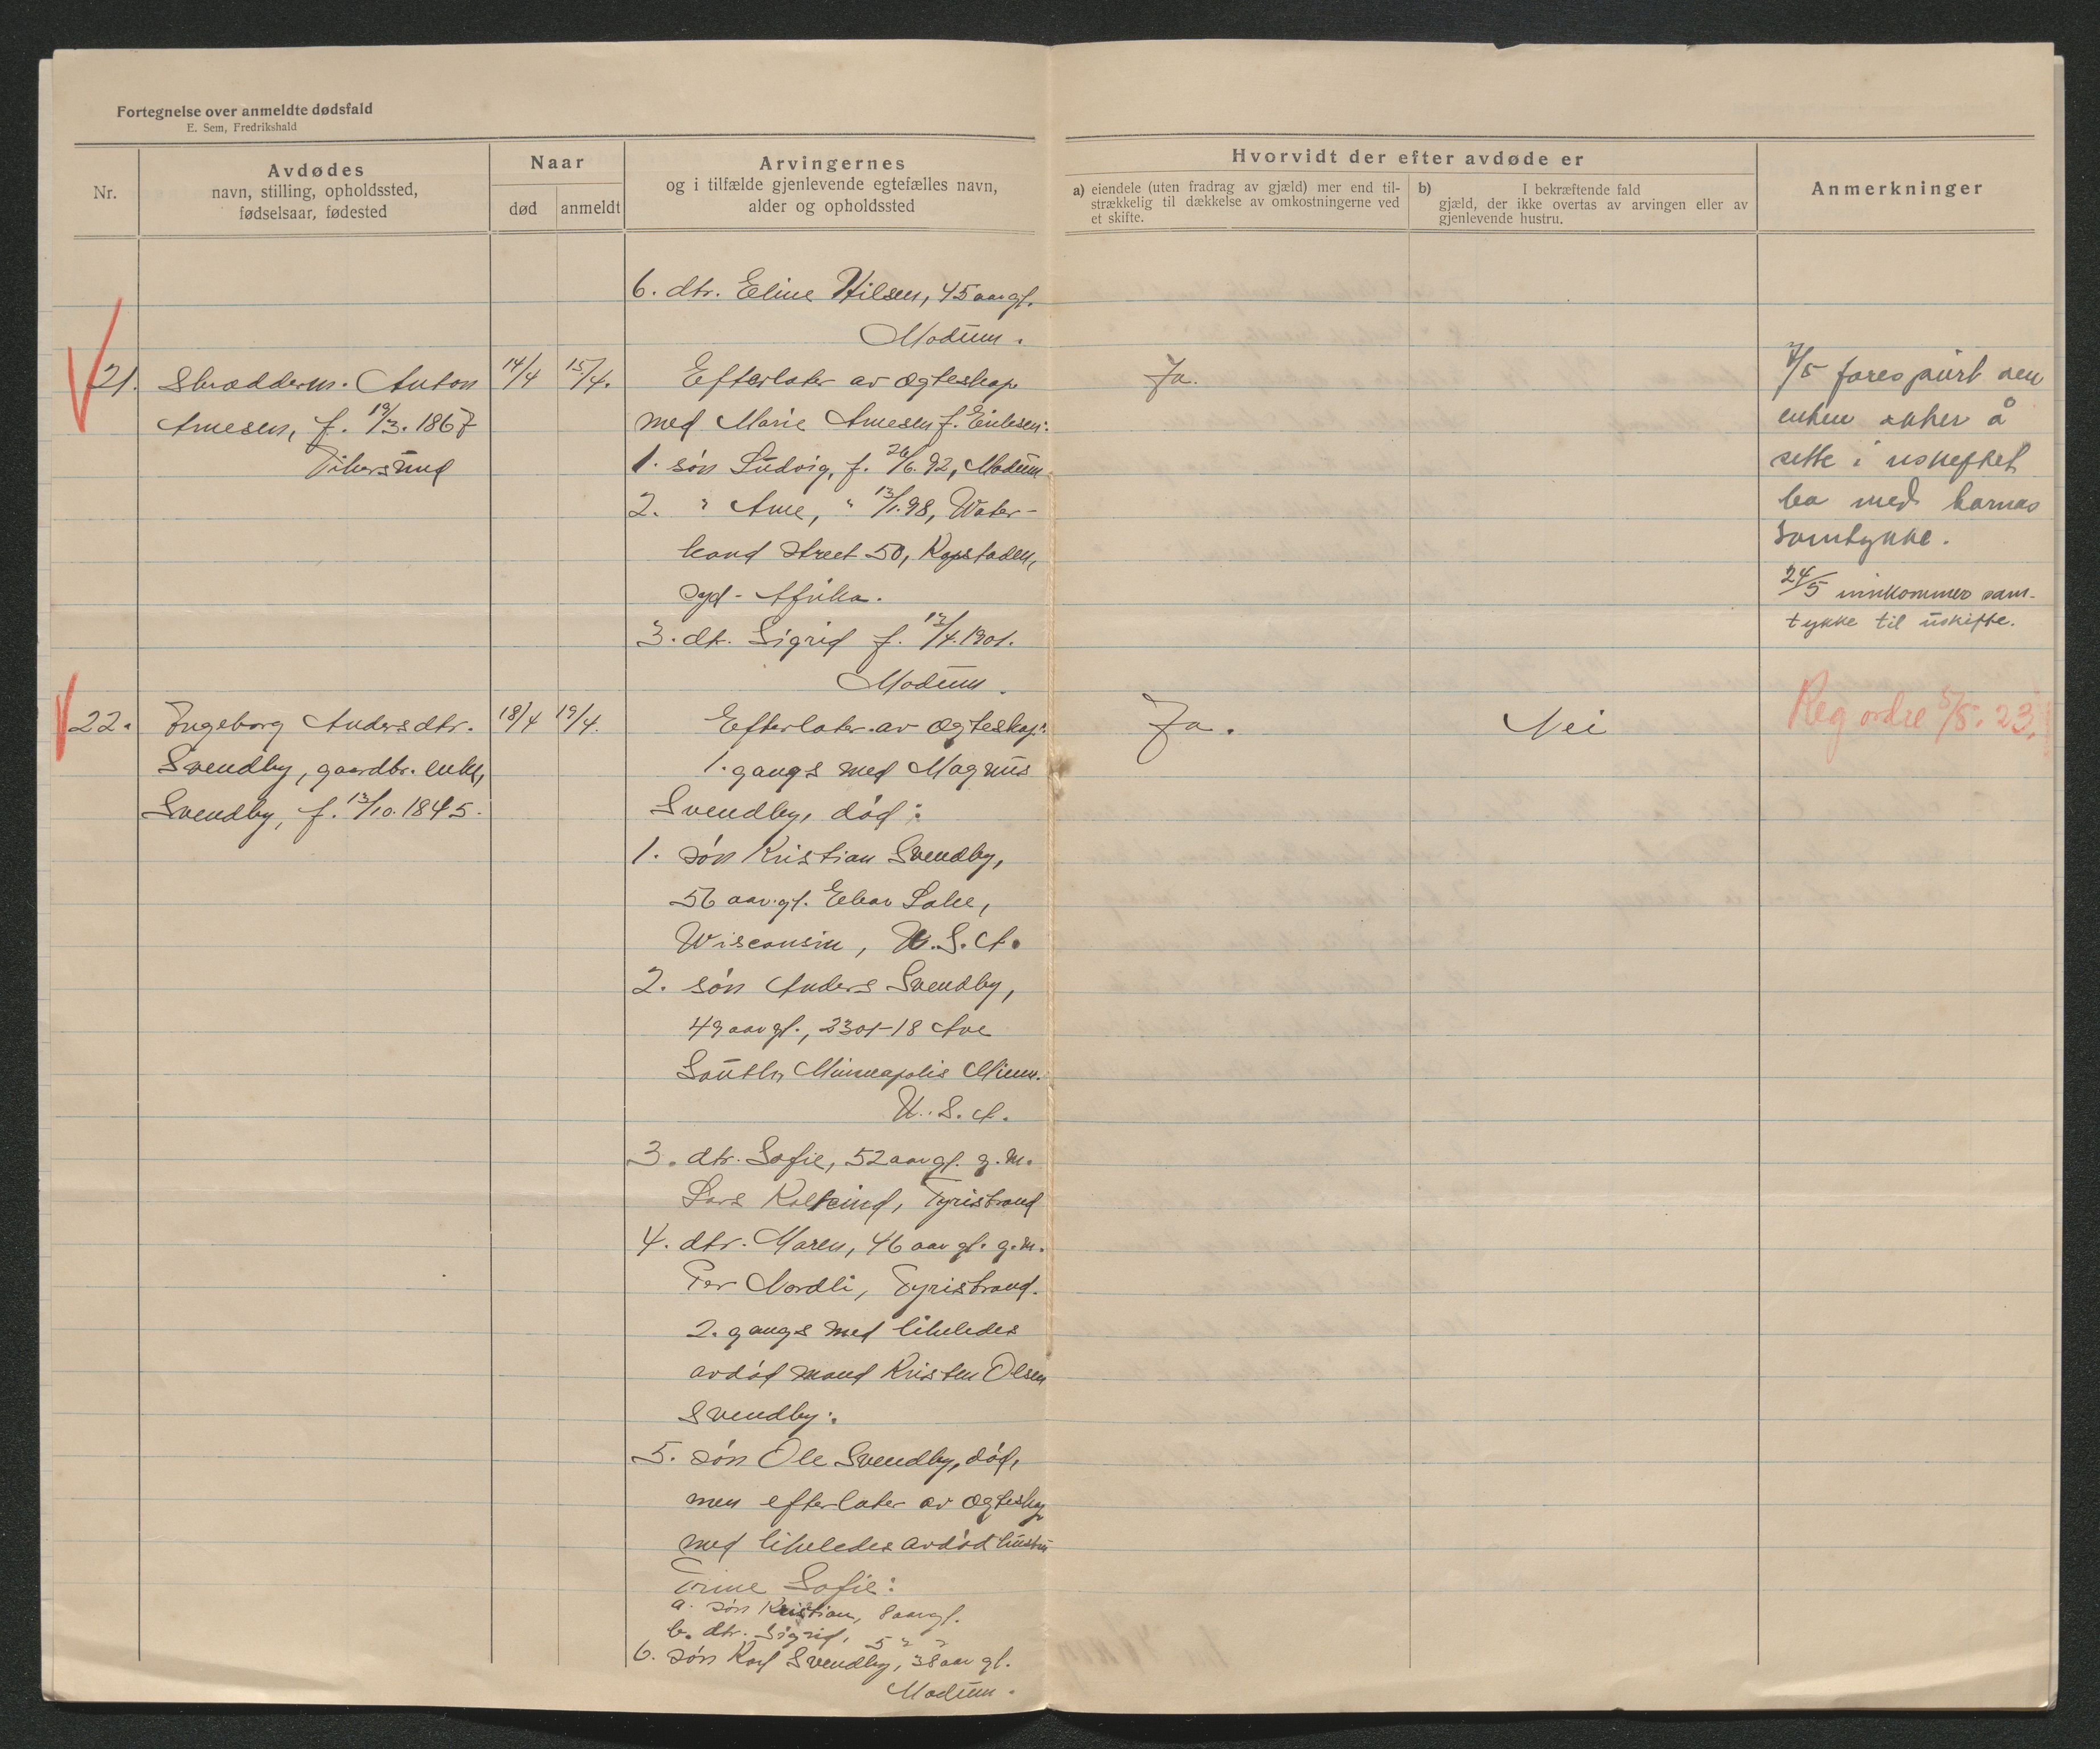 Fortegnelse over anmeldte dødsfald
E. Sem, Fredrikshald
Nr.
Avdødes
navn, stilling, opholdssted,
fødselsaar, fødested
Naar
død
anmeldt
Arvingernes
og i tilfælde gjenlevende egtefælles navn,
alder og opholdssted
Hvorvidt der efter avdøde er
a) eiendele (uten fradrag av gjæld) mer end til-
strækkelig til dækkelse av omkostningerne ved
et skifte.
b) I bekræftende fald
gjæld, der ikke overtas av arvingen eller av
gjenlevende hustru.
Anmerkninger
6. dtr. Eline Nilsen, 45 aar gl.
Modum.
21. Skrædderm. Anton
Arnesen, f. 19/3. 1867
Vikersund
14/4
15/4.
Efterlater av Ægteskap
med Marie Arnesen f. Eriksen:
1. søn Ludvig, f. 26/6. 92, Modum
2. " Arne, " 13/1. 98, Water-
kand Street 50, Kapstaden,
Syd-Afrika.
3. dt. Sigrid f. 12/4. 1901.
Modum.
Ja.
4/5 forespurt den
enken ønker å
sitte i uskiftet
bo med barnas
samtykke.
24/5 innkommer sam-
tykke til uskifte.
22. Ingeborg Andersdtr.
Svendby, gaardbr. enke,
Svendby, f. 13/10. 1845.
18/4
19/4.
Efterlater av Ægteskap:
1. gangs med Magnus
Svendby, død:
1. søn Kristian Svendby,
56 aar gl. Elbav Lake,
Wisconsin, U.S.A.
2. søn Anders Svendby,
49 aar gl., 2301-18 Ave
South, Minneapolis Minn.
U.S.A.
3. dtr. Sofie, 52 aar gl. g. m.
Lars , Tyristrand
4. dtr. Maren, 46 aar gl. g. m.
Per Nordli, Tyristrand.
2. gangs med likeledes
avdød mand Kristen Olsen
Svendby:
5. søn Ole Svendby, død,
men efterlater av Ægteskap
med likeledes avdød hustru
Trine Sofie:
a. søn Kristian, 8 aar gl.
b. dtr. Sigrid, 5 " "
6. søn Karl Svendby, 38 aar gl.
Modum.
Ja.
Nei
Reg ordre 5/5. 23.